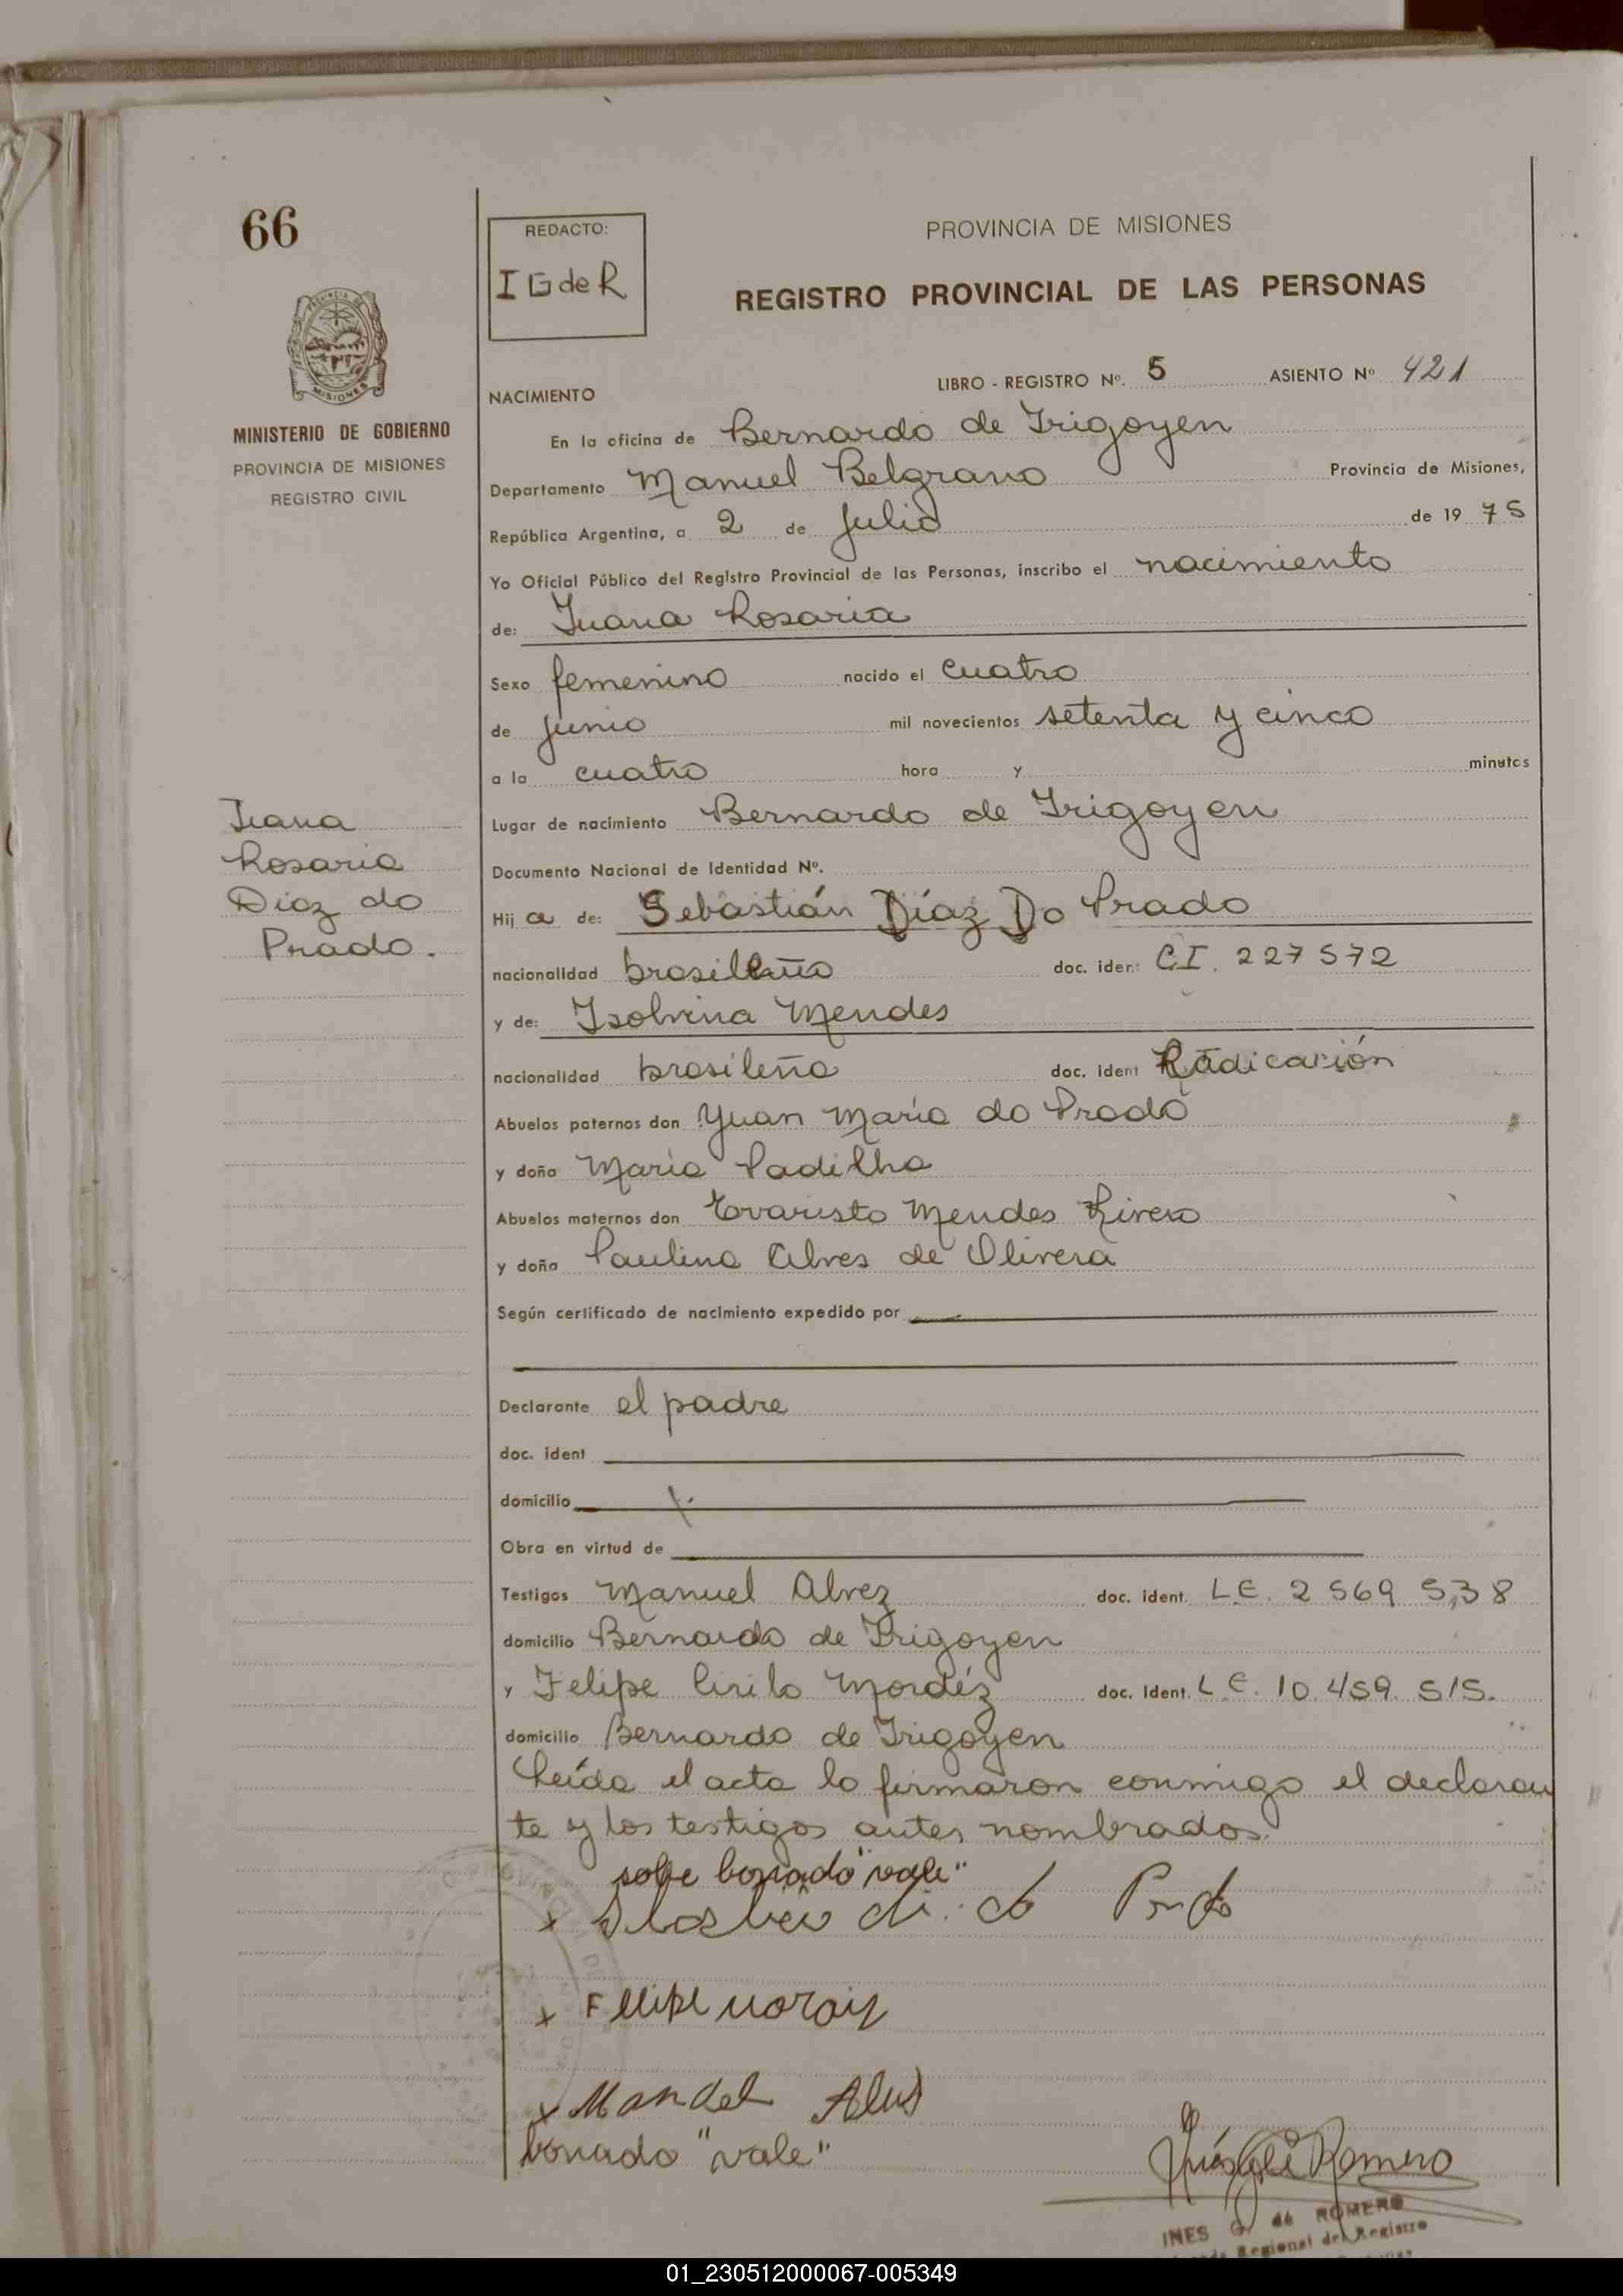 66
REDACTO:
I G de R
PROVINCIA DE MISIONES
REGISTRO PROVINCIAL DE LAS PERSONAS
MISIONES
MINISTERIO DE GOBIERNO
PROVINCIA DE MISIONES
REGISTRO CIVIL
NACIMIENTO
LIBRO - REGISTRO Nº. 5 ASIENTO Nº 421
En la oficina de Bernardo de Irigoyen
Departamento Manuel Belgrano Provincia de Misiones,
República Argentina, a 2 de julio de 19 75
Yo Oficial Público del Registro Provincial de las Personas, inscribo el nacimiento
de: Juana Rosaria
Sexo femenino nacido el cuatro
de junio mil novecientos setenta y cinco
a la cuatro hora y minutos
Lugar de nacimiento Bernardo de Irigoyen
Juana
Rosaria
Diaz do
Prado.
Documento Nacional de Identidad Nº.
Hij a de: Sebastián Díaz Do Prado
nacionalidad brasileño doc. iden: C.I. 227572
y de: Isolvina Mendes
nacionalidad brasileña doc. ident Radicación
Abuelos paternos don Juan María do Prado
y doña María Padilha
Abuelos maternos don Evaristo Mendes Rivero
y doña Paulina Alves de Olivera
Según certificado de nacimiento expedido por
Declarante el padre
doc. ident
domicilio
Obra en virtud de
Testigos Manuel Alvez doc. ident. L.E. 2 569 538
domicilio Bernardo de Irigoyen
y Felipe Cirilo Mordéz doc. Ident. L.E. 10.459.515.
domicilio Bernardo de Irigoyen
Leída el acta la firmaron conmigo el declaran
te y los testigos antes nombrados.
sobre borrado "vale"
x do Prado
x Felipe
x Manuel
borrado "vale"
Romero
INES G. de ROMERO
Regional del Registro
01_230512000067-005349